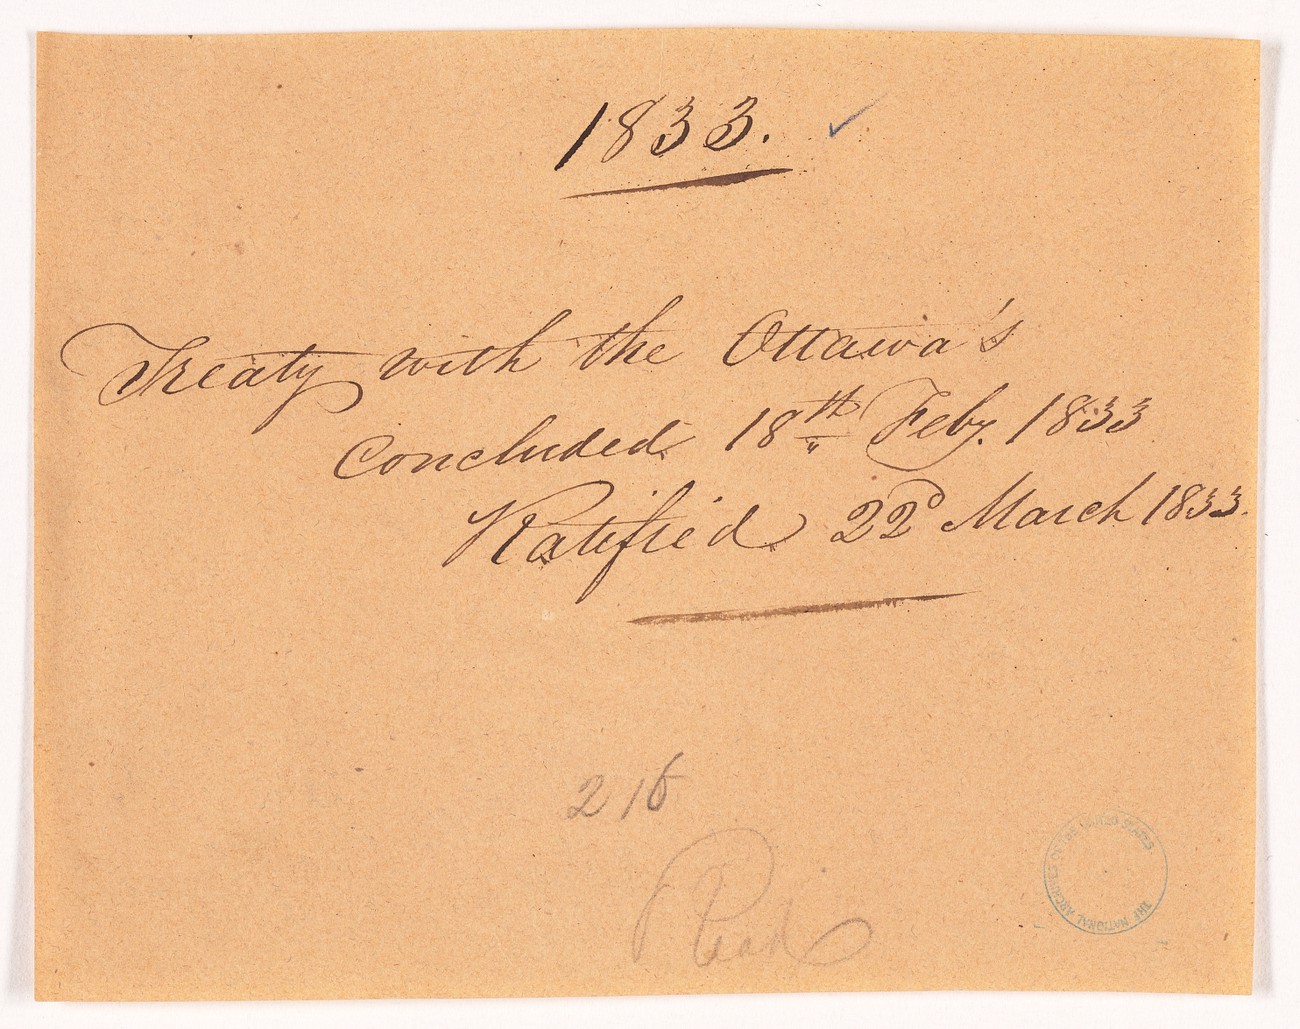 1833.
Treaty with the Ottawa's
concluded 18th Feby. 1833
Ratified 22d March 1833.
216
Read
THE NATIONAL ARCHIVES OF THE UNITED STATES